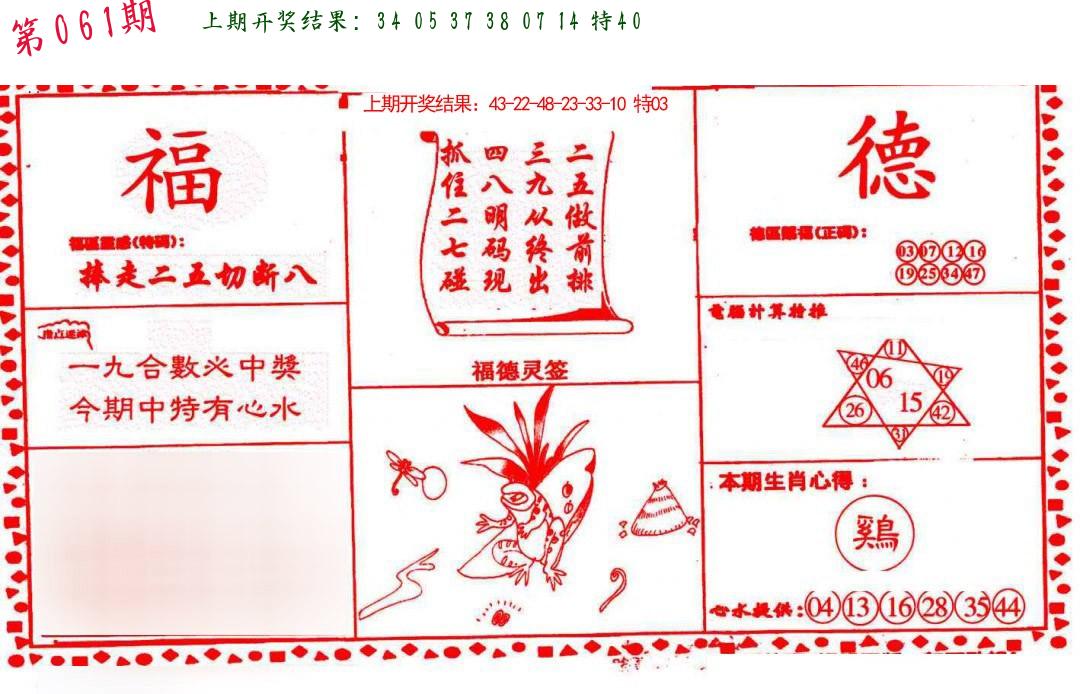 第061期
上期开奖结果: 34 05 37 38 07 14 特40
上期开奖结果: 43-22-48-23-33-10 特03
福
福區靈感(特码):
捧走二五切断八
一九合數必中獎
今期中特有心水
二五做前排
三九从终出
四八明码现
抓住二七碰
福德灵签
德
德區賜福(正碼):
03 07 12 16
19 25 34 47
電腦計算搶推
11
46 06 19
26 15 42
31
本期生肖心得:
鷄
心水提供: 04 13 16 28 35 44